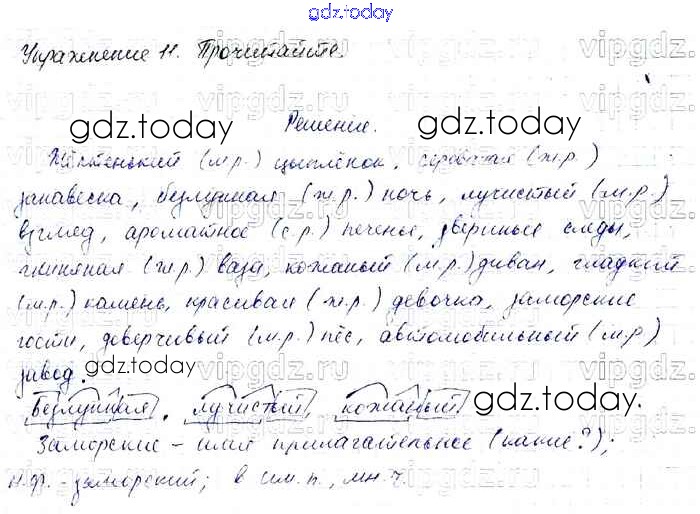 gdz.today
Упражнение 11. Прочитайте.
Решение.
gdz.today gdz.today
Жёлтенький (м.р.) цыплёнок, (ж.р.)
занавеска, безлунная (ж.р.) ночь, лучистый (м.р.)
взгляд, ароматное (с.р.) печенье, звериные следы,
глиняная (ж.р.) ваза, кожаный (м.р.) диван, гладкий
(м.р.) камень, красивая (ж.р.) девочка, заморские
гости, доверчивый (м.р.) пёс, автомобильный (м.р.)
завод.
gdz.today
Безлунная, лучистый, кожаный gdz.today.
Заморские – имя прилагательное (какие?);
н.ф. - заморский; в им.п., мн.ч.